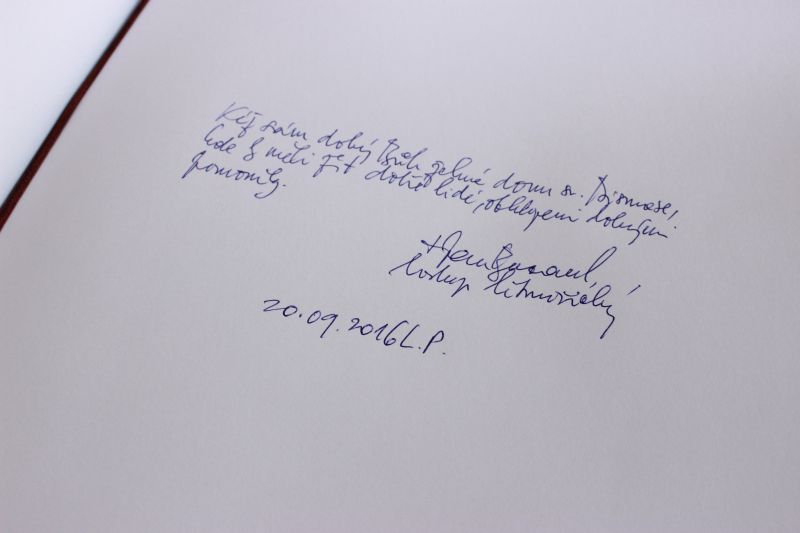 Kéž sám dobrý Bůh žehná domu sv. Dismase,
kde by měli žít dobří lidé, obklopeni dobrými
pomocníky.
+ Jan Baxant,
biskup litoměřický
20.09.2016 L.P.